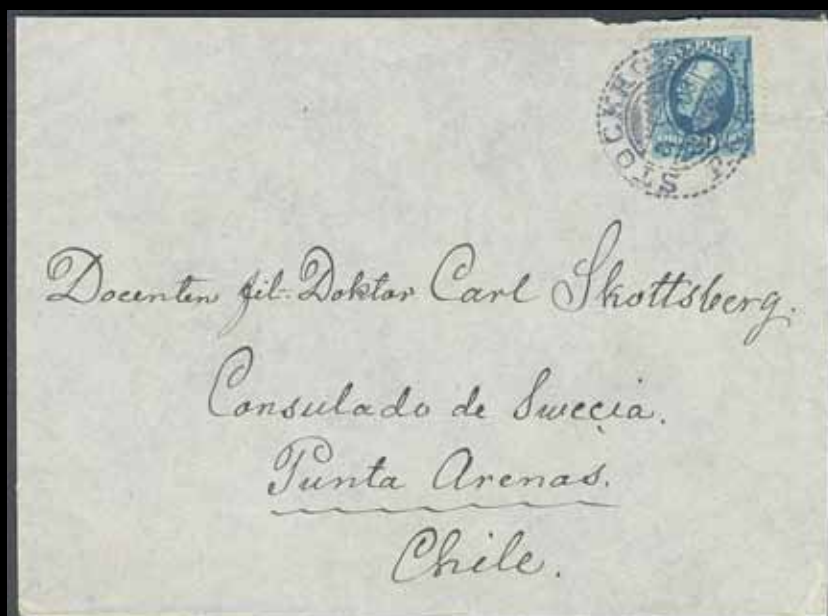 SVERIGE
STOCKHOLM
20
Docenten fil. Doktor Carl Skottsberg.
Consulado de Swecia.
Punta Arenas.
Chile.